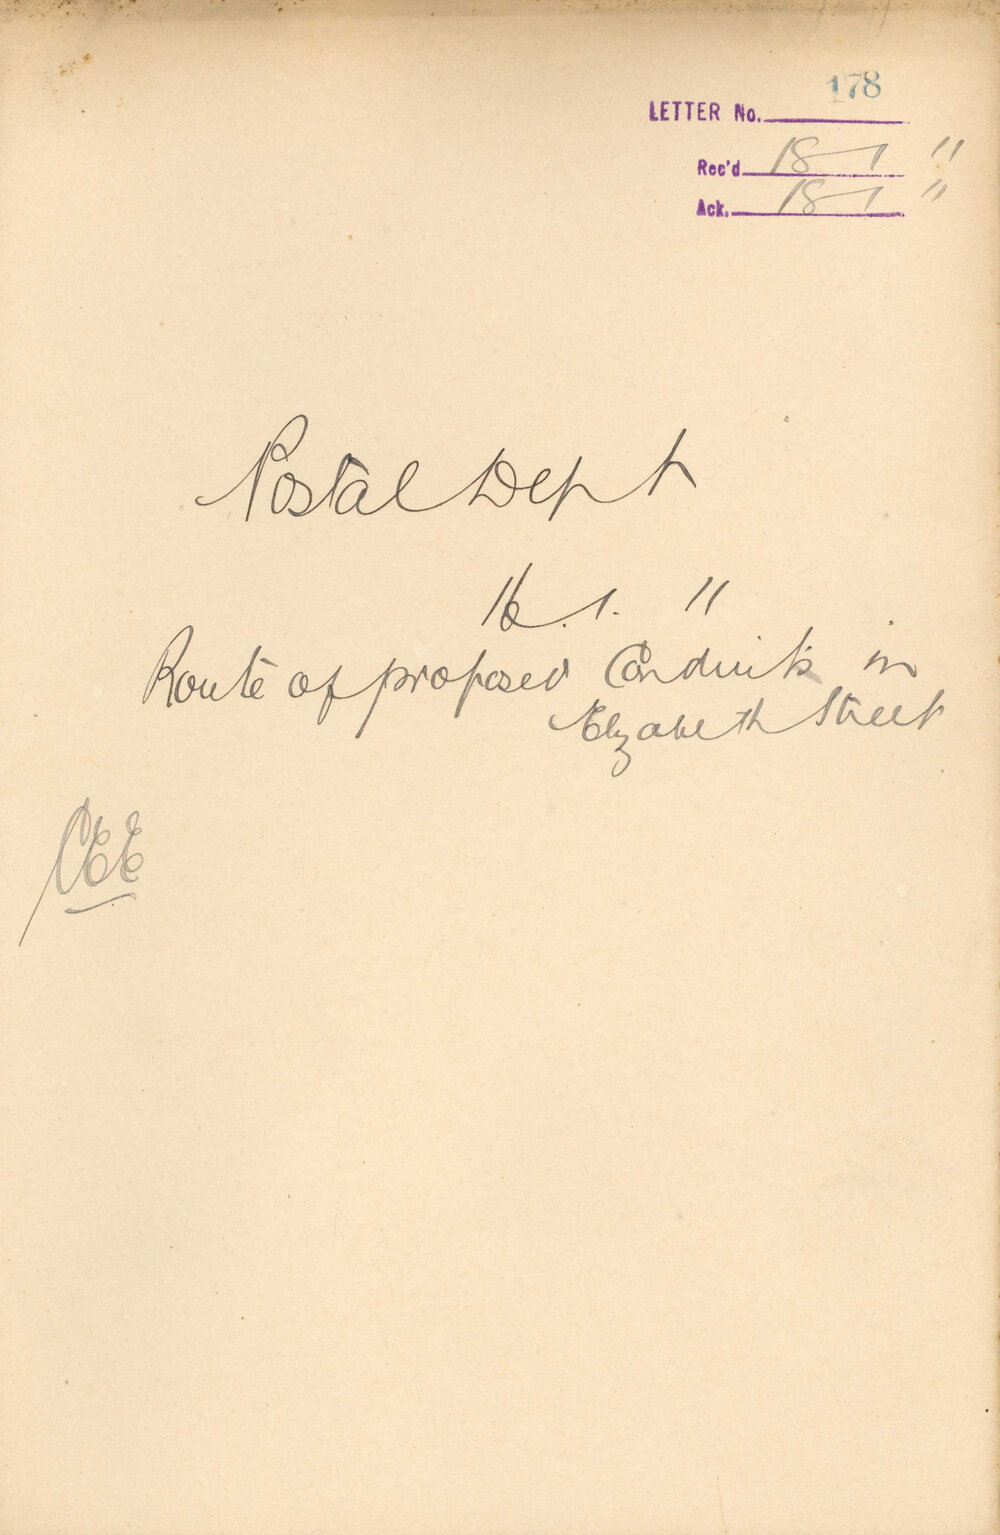 178
LETTER No.
Rec'd 18-1 11
Ack. 18-1 11
Postal Dept
16.1. 11
Route of proposed Conduits in
Elizabeth Street
CEE